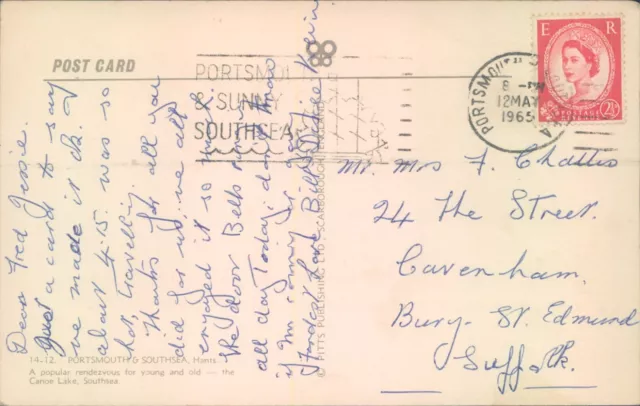 POST CARD
PORTSMOUTH
& SUNNY
SOUTHSEA
PORTSMOUTH & SOUTHSEA
8 - PM
12 MAY
1965
E R
POSTAGE
2½D
Dear Fred Jessie.
Just a card to say
we made it ok.
about 4.15 was so
hot, travelling.
Thanks for all you
did for us, we all
enjoyed it so much.
the door Bells
all day Today, don't know
if I'm coming or
Fondest Love Bill
Kevin
Mr. Mrs F. Challis
24 The Street.
Cavenham.
Bury. St. Edmund
Suffolk.
14-12. PORTSMOUTH & SOUTHSEA, Hants.
A popular rendezvous for young and old — the
Canoe Lake, Southsea.
© PITTS PUBLISHING LTD. SCARBOROUGH, ENGLAND